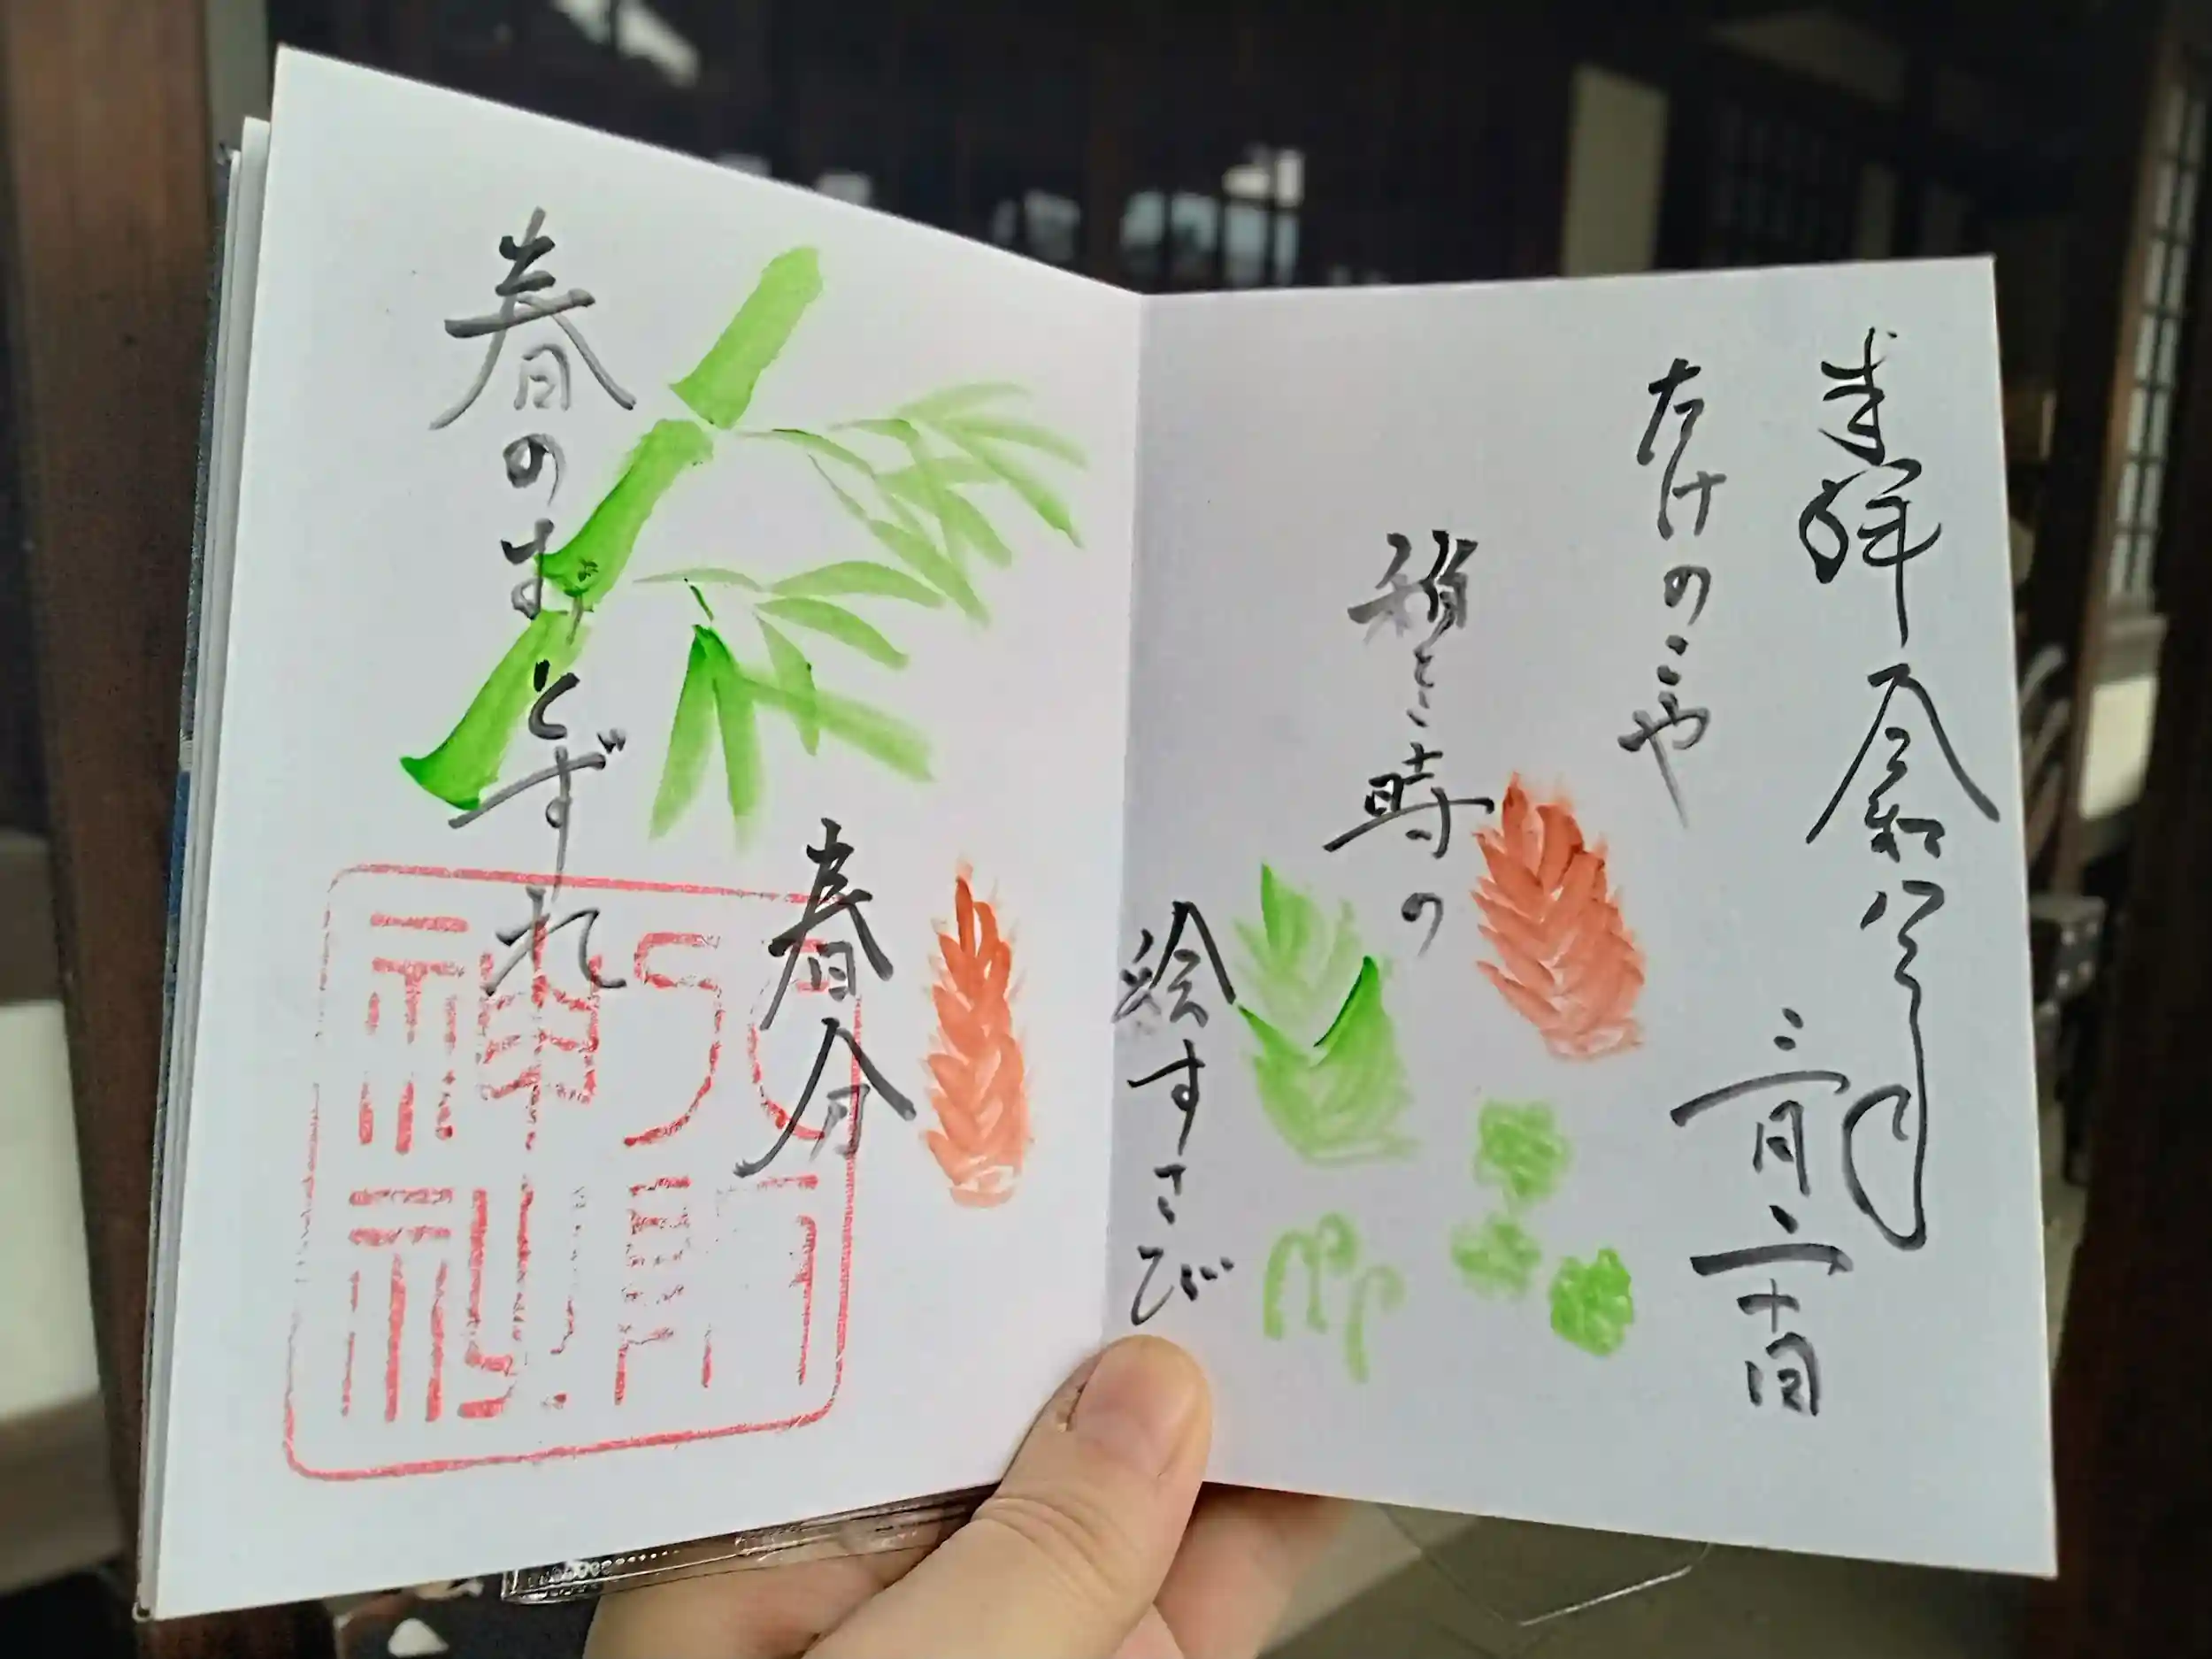 奉拝 令和八年
三月二十日
たけのこや
稚き時の
絵すさび
春のおとずれ
春分